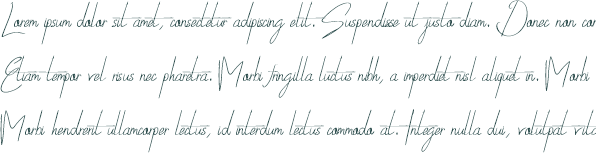 Lorem ipsum dolor sit amet, consectetur adipiscing elit. Suspendisse ut justo diam. Donec non con
Etiam tempor vel risus nec pharetra. Morbi fringilla luctus nibh, a imperdiet nisl aliquet in. Morbi
Morbi hendrerit ullamcorper lectus, id interdum lectus commodo at. Integer nulla dui, volutpat vita